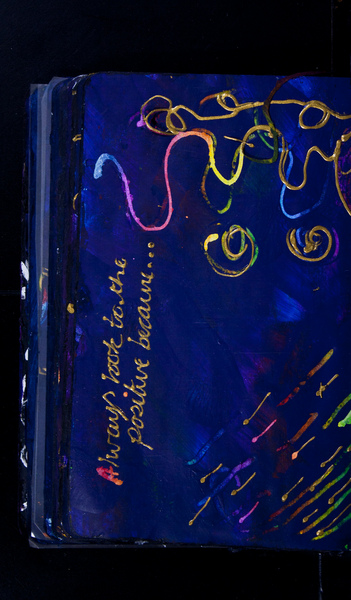 Always look to the
positive because...